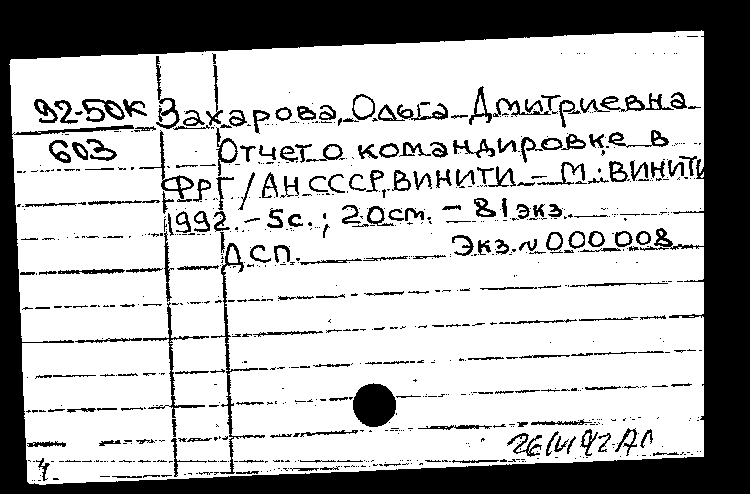 92-50К Захарова, Ольга Дмитриевна
603 Отчет о командировке в
ФРГ / АН СССР, ВИНИТИ. – М.: ВИНИТИ
1992. – 5с.; 20см. – 81 экз.
ДСП. Экз. № 000 008